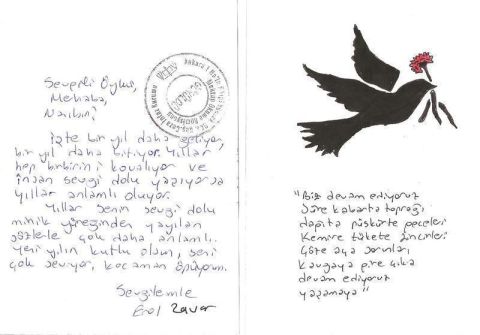 Sevgili Öykü,
Merhaba,
Nasılsın?
İşte bir yıl daha geliyor,
bir yıl daha bitiyor. Yıllar
hep birbirini kovalıyor ve
İnsan sevgi dolu yaşıyorsa
yıllar anlamlı oluyor.
Yıllar senin sevgi dolu
minik yüreğinden yayılan
gözlerle çok daha anlamlı.
Yeni yılın kutlu olsun, seni
çok seviyor, kocaman öpüyorum.
Sevgilerimle
Erol Zavar
"Biz devam ediyoruz
Süre kabarta toprağı
püskürte peçeleri
Kemire tükete zincirleri
Çöze aça sorunları
Kavgaya gire çıka
devam ediyoruz
yaşamaya"